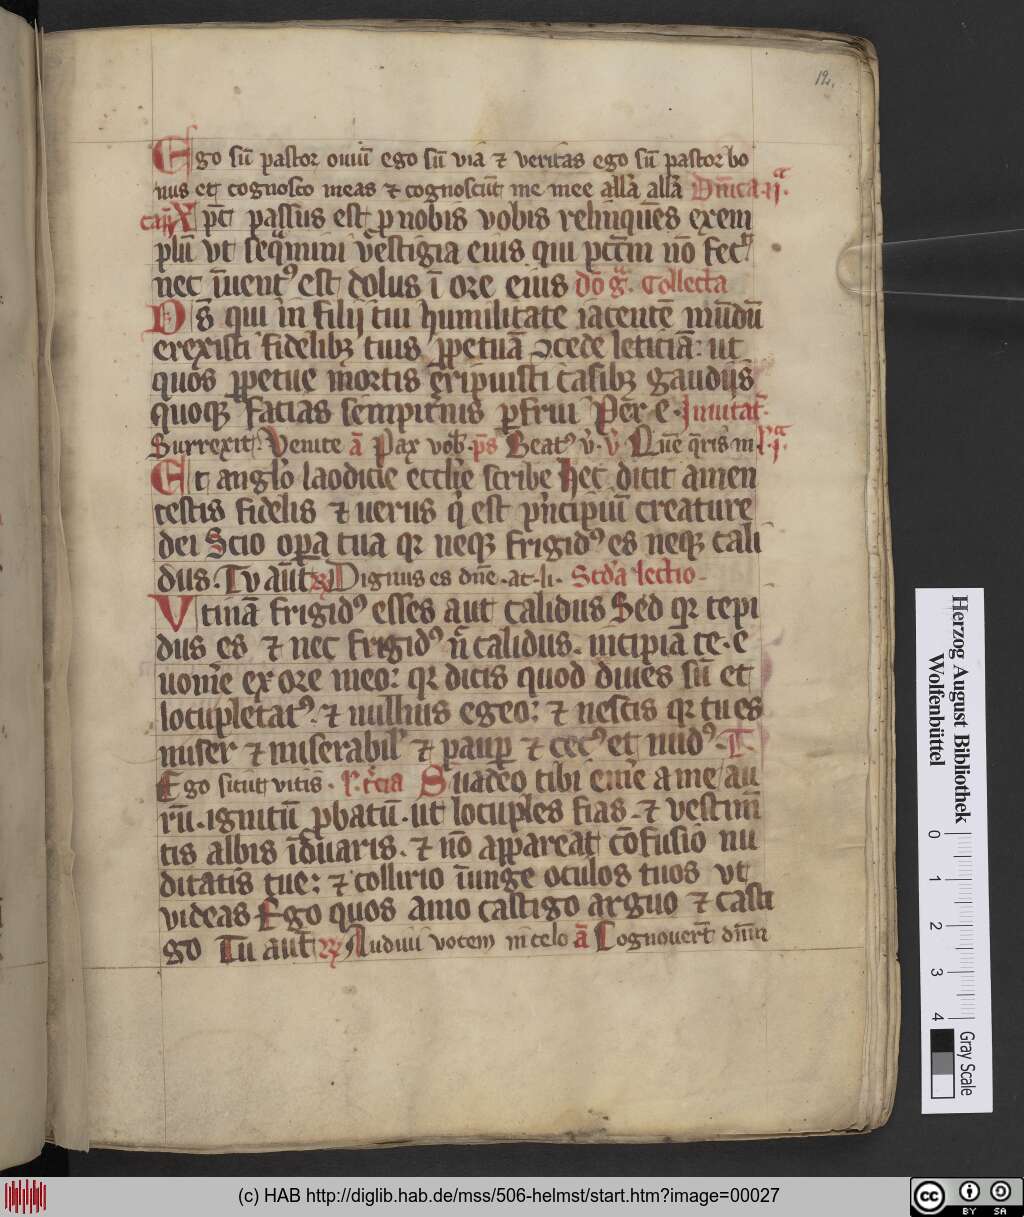 12.
Ego sū pastor ouiū ego sū via ⁊ veritas ego sū pastor bo
nus et cognosco meas ⁊ cognoscūt me mee allā allā Dn̄ica ij.ª
cap̄ X p̄c passus est p nobis vobis relinquēs exem
plū vt seq̄mini vestigia eius qui pctm̄ nō fec
nec īuentꝰ est dolus ī ore eius dō g̊. Collecta
Ds̄ qui in filij tui humilitate iacentē mūdū
erexisti fidelibꝫ tuis ꝑpetuā ꝯcede leticiā: ut
quos ꝑpetue mortis eripuisti casibꝫ gaudijs
quoqꝫ facias sempit̄nis ꝑfrui Per e. Inuitat̄.
Surrexit. Venite ā Pax vob̄. p̄s Beatꝰ v̄. v̄ Quē q̄ris m l. j.ª
Et anglo laodicie eccl̄ie scribe hec dicit amen
testis fidelis ⁊ uerus q̄ est p̄ncipiū creature
dei Scio opa tua qꝛ neqꝫ frigidꝰ es neqꝫ cali
dus. Tu aūt ꝶ Dignus es dn̄e .ac. li. Scd̄a lectio
Vtinā frigidꝰ esses aut calidus Sed qꝛ tepi
dus es ⁊ nec frigidꝰ n̄ calidus. incipiā te. e
uom̄e ex ore meo: qꝛ dicis quod diues sū et
locupletatꝰ. ⁊ nullius egeo: ⁊ nescis qꝛ tu es
miser ⁊ miserabil' ⁊ paup̱ ⁊ cecꝰ et nudꝰ. T.
Ego sicut vitis. l. t̄cia Suadeo tibi em̄e a me au
rū. ignitū ꝓbatū. ut locuples fias. ⁊ vestim̄
tis albis īduaris. ⁊ nō appareat cōfusio nu
ditatis tue: ⁊ collirio īunge oculos tuos vt
videas Ego quos amo castigo arguo ⁊ casti
go Tu aut̄ ꝶ Audiui vocem in celo ā Cognouert̄ dn̄m
Herzog August Bibliothek
Wolfenbüttel
0 1 2 3 4
Gray Scale
(c) HAB http://diglib.hab.de/mss/506-helmst/start.htm?image=00027
cc BY SA